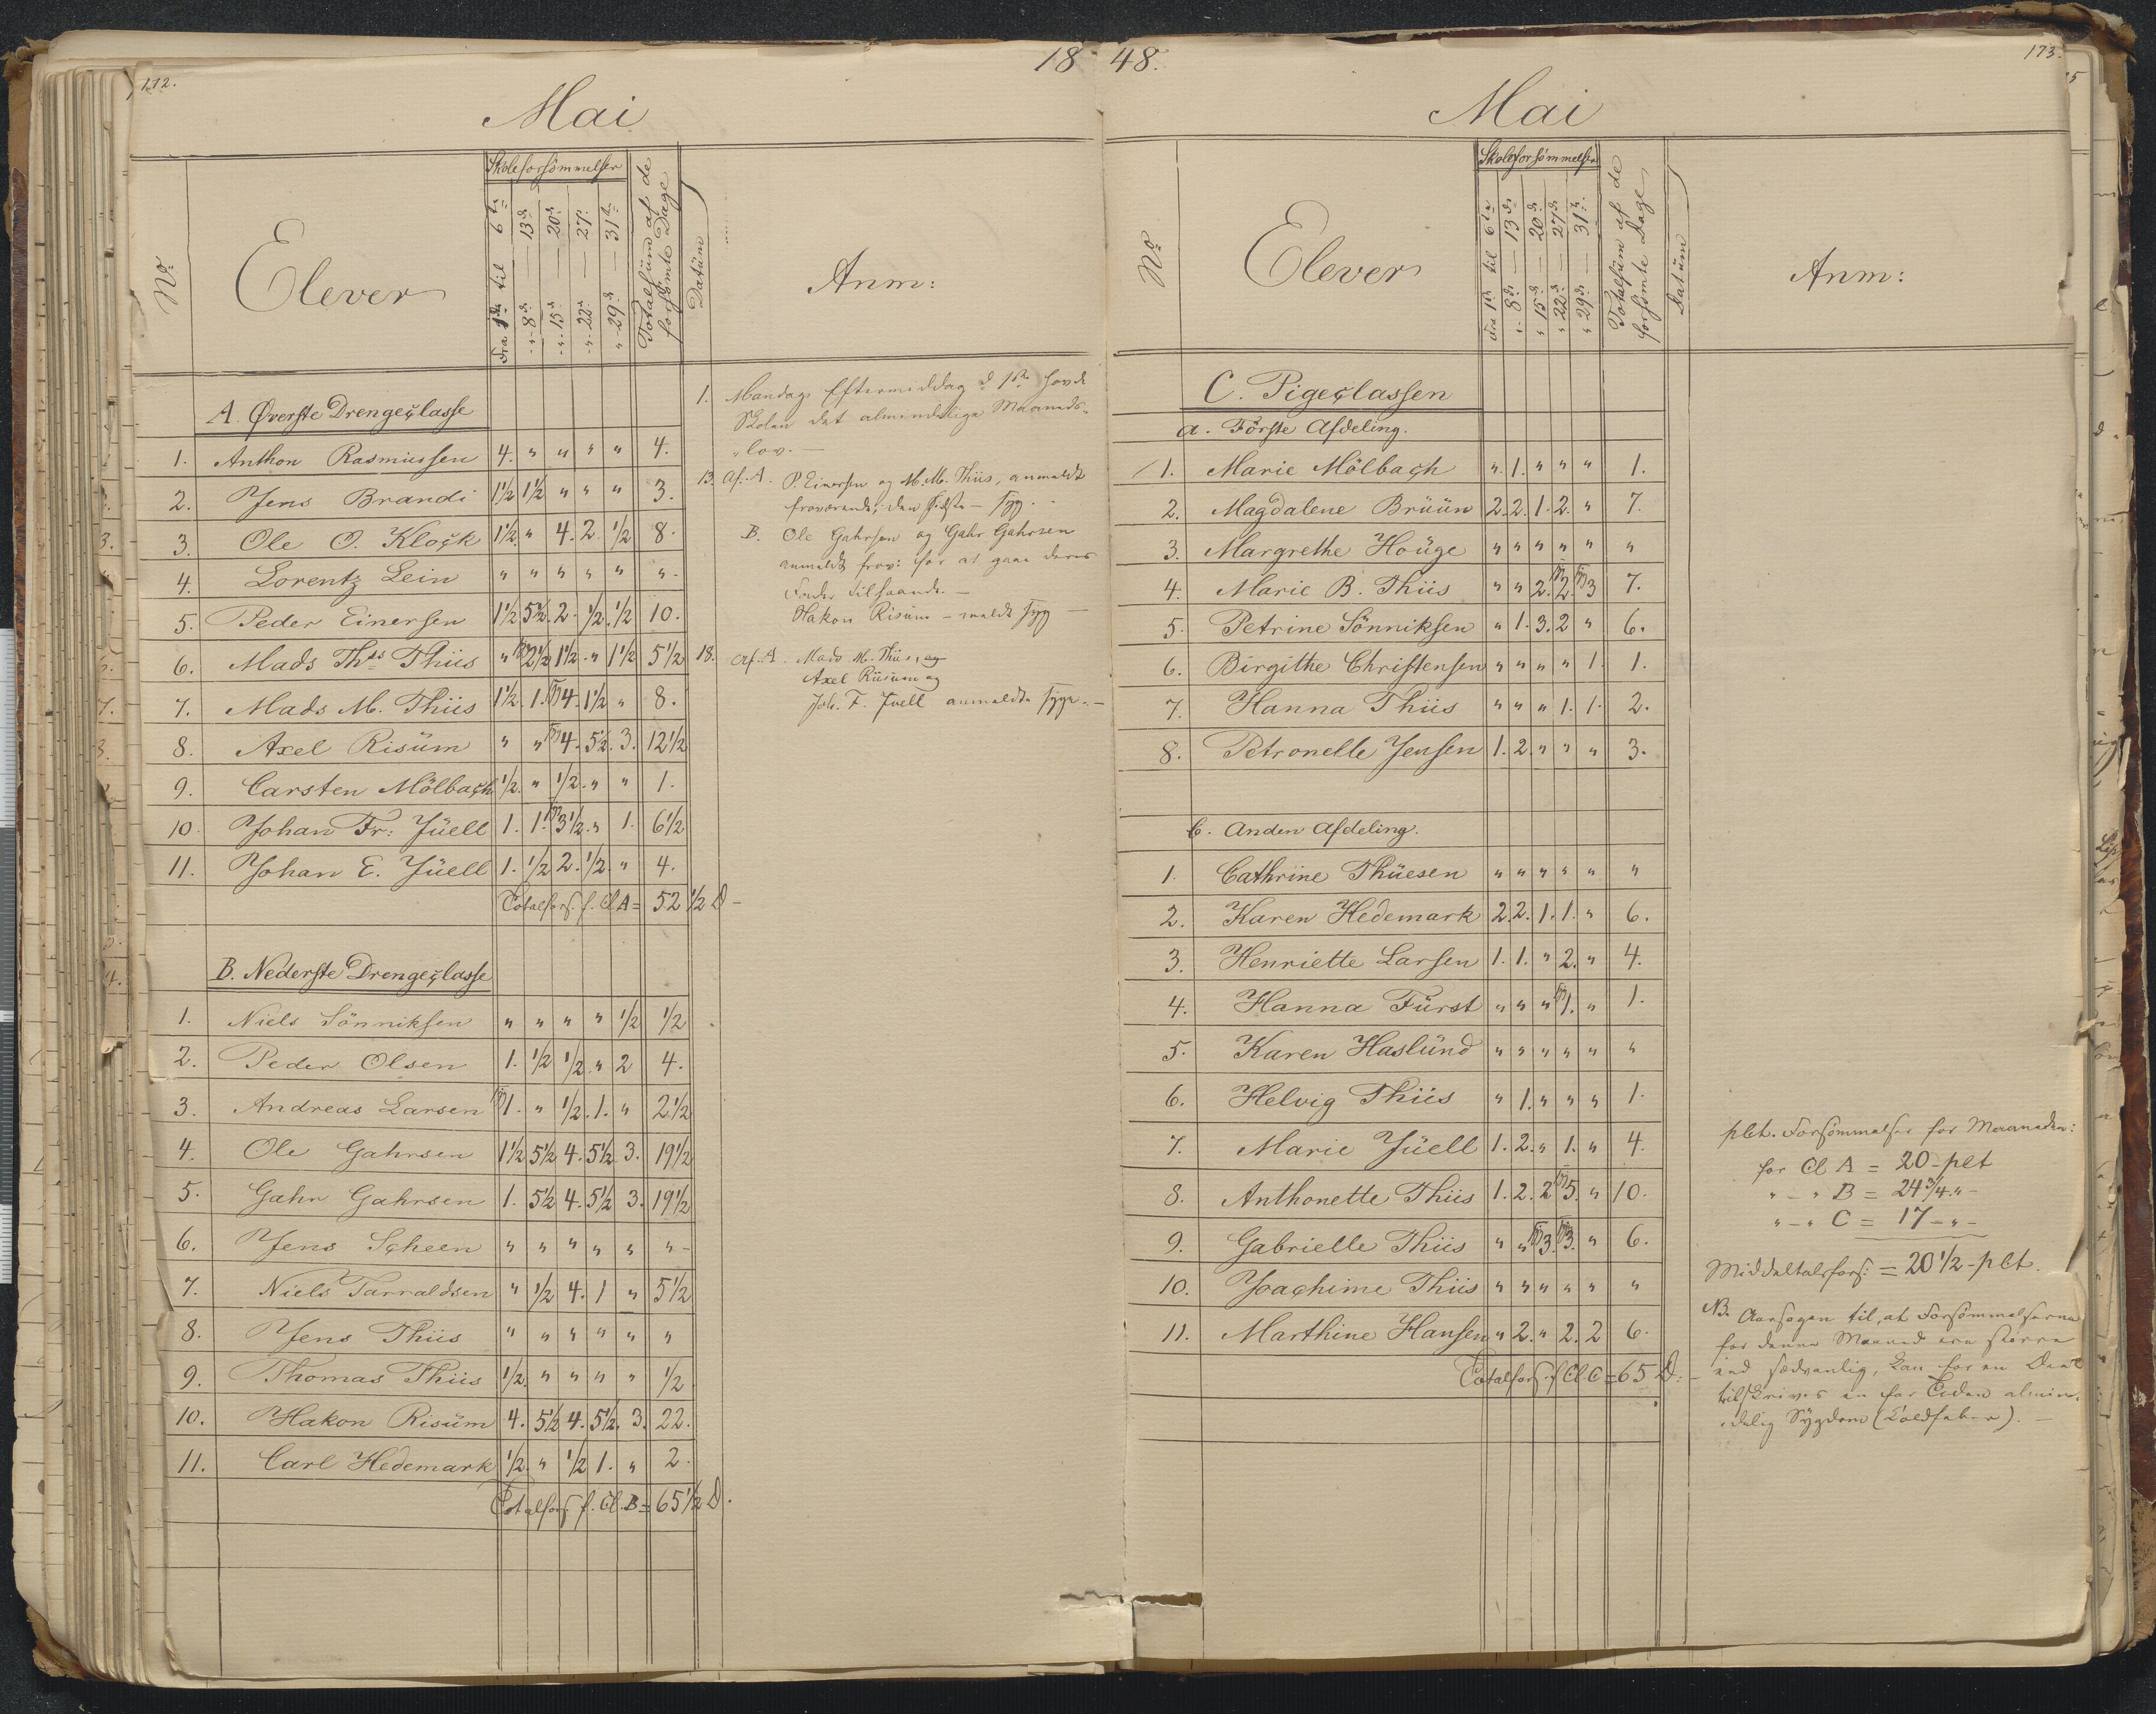 172.
18
Mai
No
Elever
Skoleforsömmelser
fra 1ste til 6te
" - 8de — 13de
" - 15de — 20de
" - 22de — 27de
" - 29de — 31te
Totalsüm af de forsömte Dage
Datüm
Anm:
A. Øverste Drengeclasse
1. Anthon Rasmüssen 4. " " " " 4.
2. Jens Brandi 1½ 1½ " " " 3.
3. Ole O. Klock 1½. " 4. 2. ½ 8.
4. Lorentz Lein " " " " " "-
5. Peder Einersen 1½ 5½. 2. ½. ½ 10.
6. Mads Ths Thiis " 2½ 1½. " 1½ 5½
7. Mads M. Thiis 1½. 1. 4. 1½ " 8.
8. Axel Risüm " " 4. 5½. 3. 12½
9. Carsten Mölbach ½. " ½. " " 1.
10. Johan Fr: Jüell 1. 1. 3½. " 1. 6½
11. Johan E. Jüell 1. ½ 2. ½. " 4.
Totalfors. f. Cl A = 52½ D -
B. Nederste Drengeclasse
1. Niels Sönniksen " " " " ½ ½
2. Peder Olsen 1. ½ ½. " 2 4.
3. Andreas Larsen 1. " ½. 1. " 2½
4. Ole Gahrsen 1½ 5½ 4. 5½ 3. 19½
5. Gahr Gahrsen 1. 5½ 4. 5½ 3. 19½
6. Jens Scheen " " " " " "-
7. Niels Tarraldsen " ½ 4. 1 " 5½
8. Jens Thiis " " " " " "
9. Thomas Thiis ½. " " " " ½
10. Hakon Risüm 4. 5½ 4. 5½. 3. 22.
11. Carl Hedemark ½. " ½ 1. " 2.
Totalfors. f. Cl. B = 65½ D.
1. Mandags Eftermiddag d 1ste havde
Skolen det almindelige Maaneds-
"lov. —
13. Af: A. P. Einersen og M. M. Thiis, anmeldt
fraværende, den sidste - syg.
B. Ole Gahrsen og Gahr Gahrsen
anmeldt frav: for at gaae deres
Fader tilhaande. —
Hakon Risüm - meldt syg —
18. Af. A. Mads M. Thiis, og
Axel Riisum og
Joh. F. Juell anmeldte syge. —
48.
173.
Mai
No
Elever
Skoleforsömmelser
fra 1ste til 6te
" 8de — 13de
" 15de — 20de
" 22de — 27de
" 29de — 31te
Totalsüm af de forsömte Dage
Datüm
Anm:
C. Pigeclassen
a. Förste Afdeling.
1. Marie Mölbach " 1. " " " 1.
2. Magdalene Brüün 2. 2. 1. 2. " 7.
3. Margrethe Hoüge " " " " " "
4. Marie B. Thiis " " 2. 2. 3 7.
5. Petrine Sönniksen " 1. 3. 2 " 6.
6. Birgithe Christensen " " " " 1. 1.
7. Hanna Thiis " " " 1. 1. 2.
8. Petronelle Jensen 1. 2. " " " 3.
b. Anden Afdeling.
1. Cathrine Thüesen " " " " " "
2. Karen Hedemark 2. 2. 1. 1. " 6.
3. Henriette Larsen 1. 1. " 2. " 4.
4. Hanna Fürst " " " 1. " 1.
5. Karen Haslünd " " " " " "
6. Helvig Thiis " 1. " " " 1.
7. Marie Jüell 1. 2. " 1. " 4.
8. Anthonette Thiis 1. 2. 2 5. " 10.
9. Gabrielle Thiis " " 3. 3. " 6.
10. Joachime Thiis " " " " " "
11. Marthine Hansen " 2. " 2. 2 6.
Totalfors. f Cl C = 65 D. -
pCt. Forsömmelser for Maaneden:
for Cl A = 20 - pCt
" - " B = 24¾ " -
" - " C = 17 - " -
Middeltalsfors: = 20½ - pCt.
NB. Aarsagen til, at Forsömmelserne
for denne Maaned ere större
end sædvanlig, kan for en Deel
tilskrives en for Tiden almin-
"delig Sygdom (Koldfeber). —